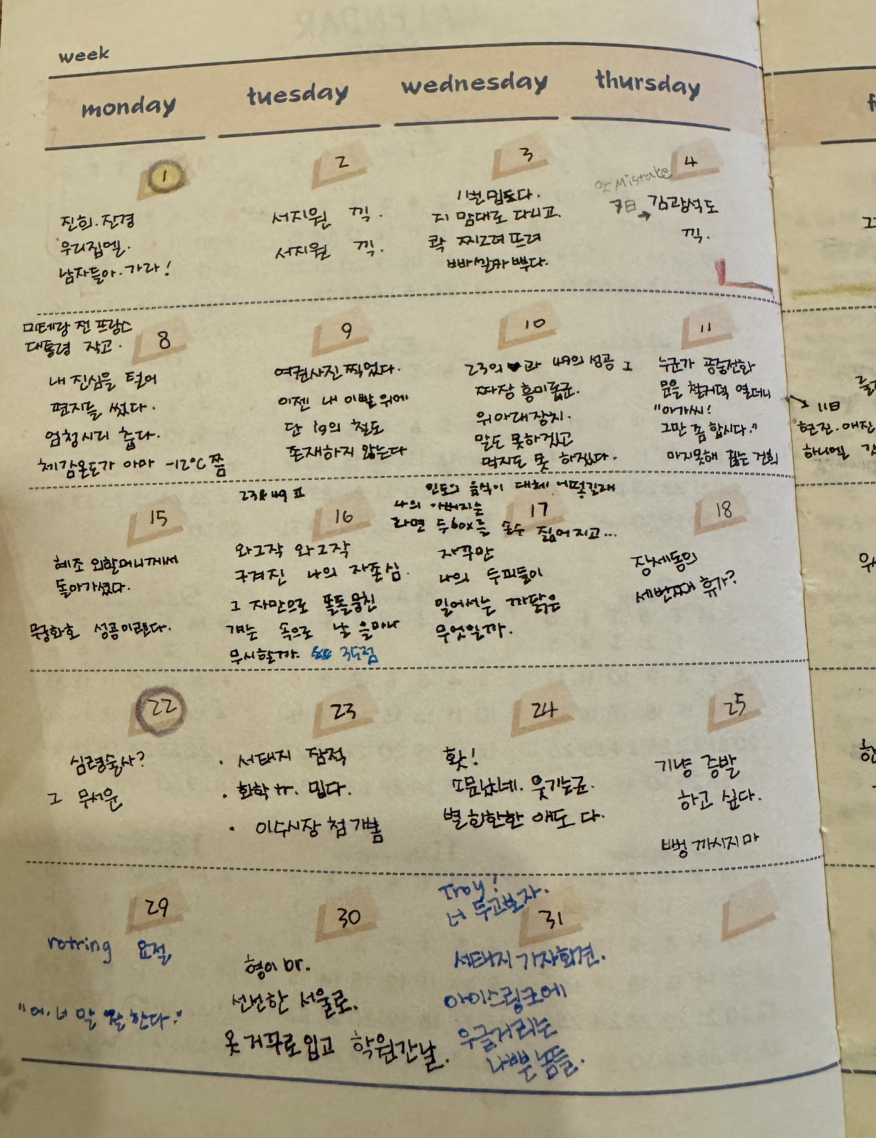 week
monday tuesday wednesday thursday
1
진희. 진경
우리집엘.
남자들아. 가라!
2
서지원 끽.
서지원 끽.
3
1번 밉도다.
지 맘대로 다니고.
콱 찌그려 뜨려
4
Mistake
7日 → 김광석도
끽.
미테랑 전 프랑스
대통령 작고.
8
내 진심을 털어
편지를 썼다.
엄청시리 춥다.
체감온도가 아마 -12°C쯤
9
여권사진 찍었다.
이젠 내 이빨 위에
단 1g의 철도
존재하지 않는다
10
23의 ♥과 49의 성공 I
짜장 흥미롭군.
위아래장치.
말도 못하겠고
먹지도 못 하겠다.
11
누군가 공중전화
문을 철커덕 열더니
"아가씨!
그만 좀 합시다."
마지못해 끊는 건희
→ 11日
현진. 애진
15
혜조 외할머니께서
돌아가셨다.
무궁화호 성공이란다.
23&49 II
16
와그작 와그작
구겨진 나의 자존심.
그 자만으로 똘똘뭉친
걔는 속으로 날 얼마나
무시할까.
인도의 음식이 대체 어떻길래
나의 아버지는
라면 두box를 손수 짊어지고...
17
자꾸만
나의 두피들이
일어서는 까닭은
무엇일까.
18
장세동의
세번째 휴가?
22
심령술사?
그 무서운
23
· 서태지 잠적
· 화학 tr. 밉다.
· 이수시장 첨 가봄
24
홧!
또문남네. 웃기는군.
별 희한한 애도 다.
25
기냥 증발
하고 싶다.
뻥 까시지 마
29
rotring
"어. 너 말 잘 한다."
30
형이 br.
선선한 서울로.
옷 거꾸로 입고 학원간날.
Troy!
너 두고보자.
31
서태지 기자회견.
아이스링크에
우글거리는
나쁜 놈들.